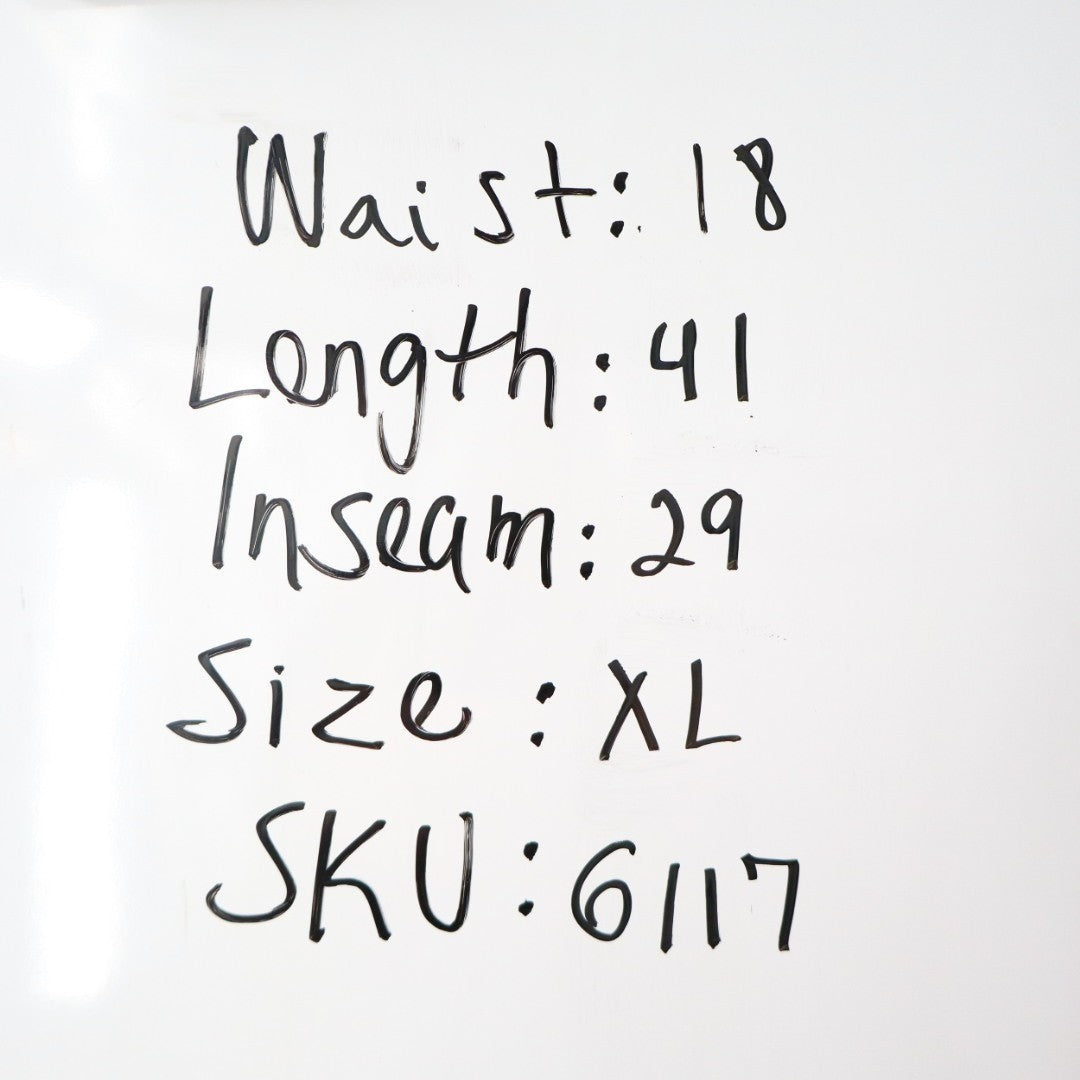 Waist: 18
Length: 41
Inseam: 29
Size: XL
SKU: 6117